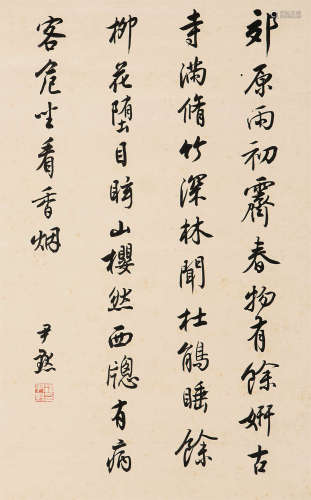 郊原雨初霽春物有餘妍古
寺滿脩竹深林聞杜鵑睡餘
柳花墮目眩山櫻然西牕有病
客危坐看香烟
尹默